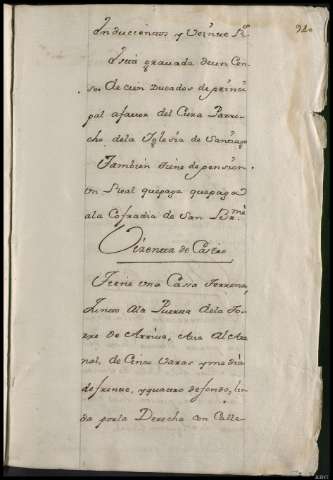 Induccionas y veinte Rs
Está gravada de un Cen-
so, De cien Ducados de princi-
pal afavor del Cura Parro-
cho dela Yglesia de Santiago
Tambien tiene de pension
Un Real quepaga quepaga
ala Cofradia de San Brme
Vizenta de Castro
Tiene una Cassa Terrena,
Junto ala Puerta dela To-
rre De Arriva, Aia Al Are-
nal, de Cinco varas ymedia
defrente, yquatro defondo, lin-
da porla Derecha con Calle